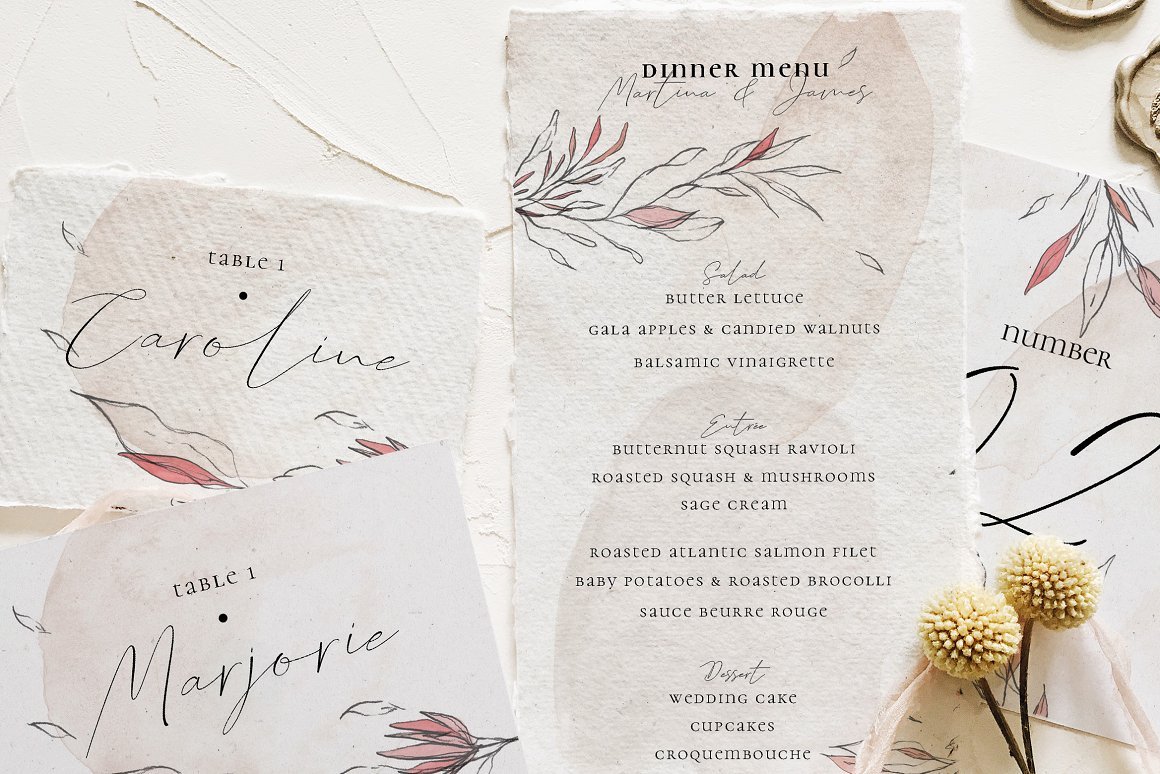 DINNER MENU
Martina & James
Salad
BUTTER LETTUCE
GALA APPLES & CANDIED WALNUTS
BALSAMIC VINAIGRETTE
Entrée
BUTTERNUT SQUASH RAVIOLI
ROASTED SQUASH & MUSHROOMS
SAGE CREAM
ROASTED ATLANTIC SALMON FILET
BABY POTATOES & ROASTED BROCOLLI
SAUCE BEURRE ROUGE
Dessert
WEDDING CAKE
CUPCAKES
CROQUEMBOUCHE
TABLE 1
Caroline
TABLE 1
Marjorie
NUMBER